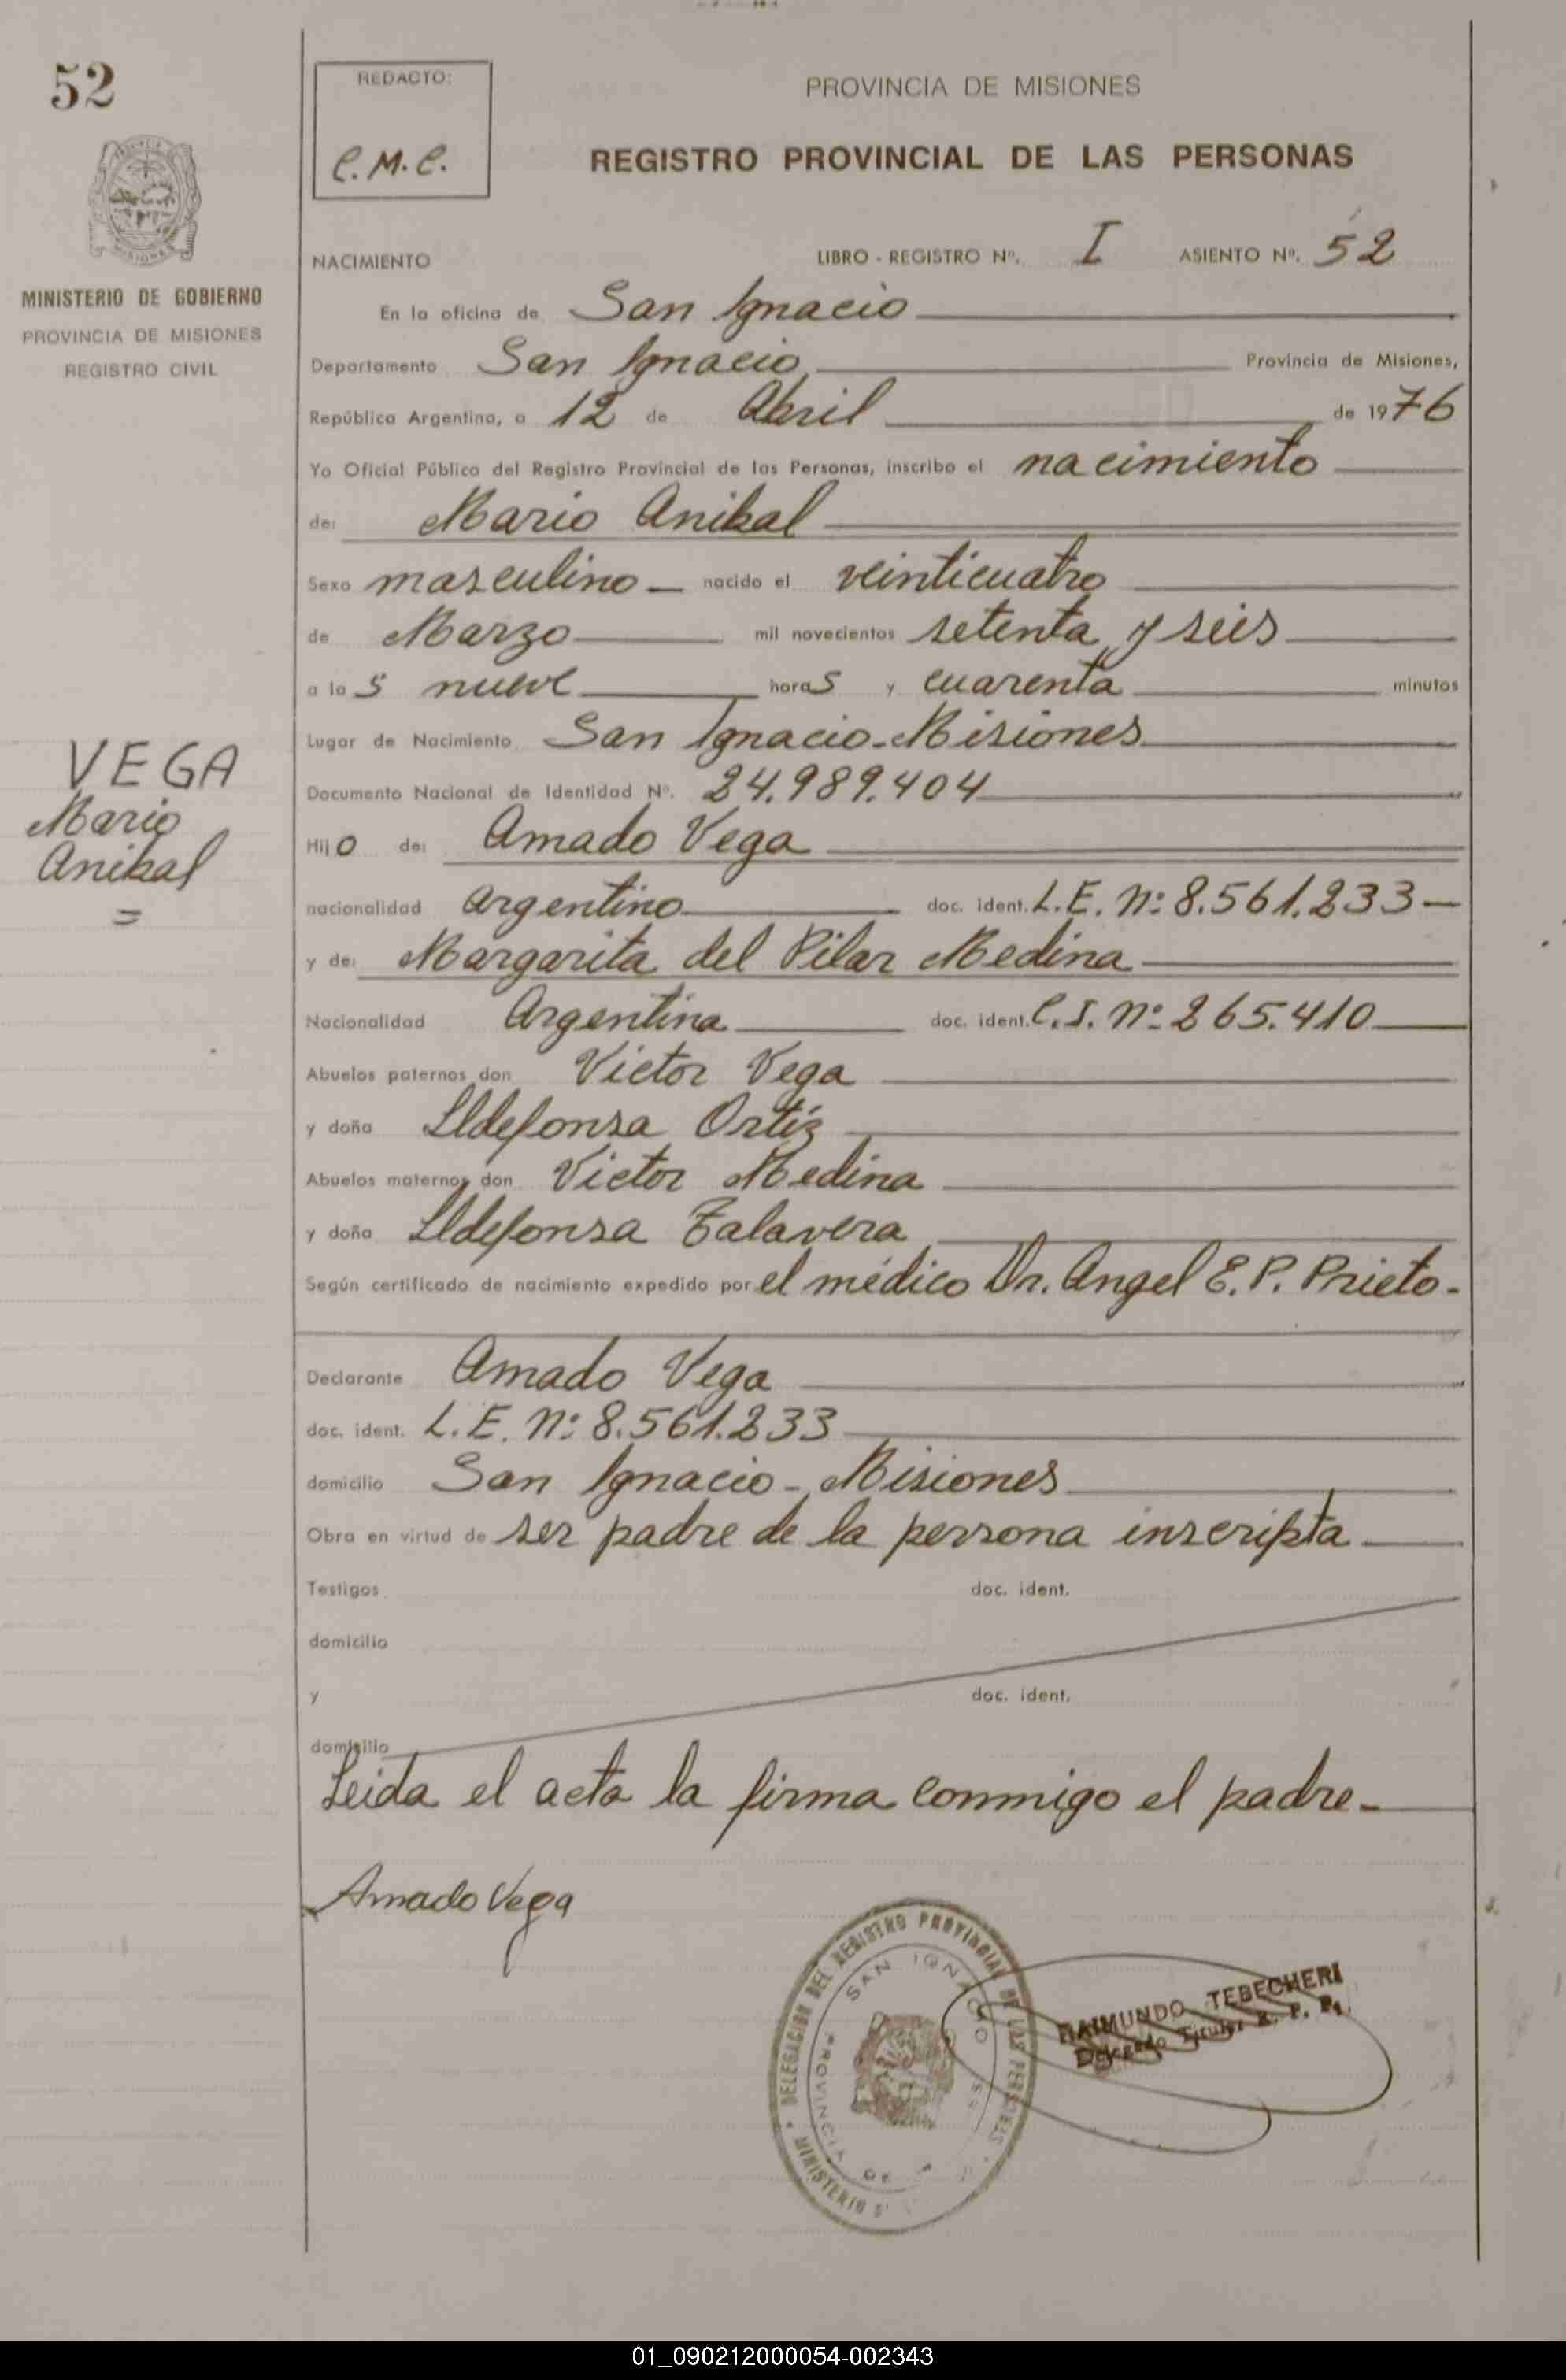 52
REDACTO:
C.M.C.
PROVINCIA DE MISIONES
REGISTRO PROVINCIAL DE LAS PERSONAS
MINISTERIO DE GOBIERNO
PROVINCIA DE MISIONES
REGISTRO CIVIL
NACIMIENTO LIBRO - REGISTRO Nº. I ASIENTO Nº. 52
En la oficina de San Ignacio
Departamento San Ignacio Provincia de Misiones,
República Argentina, a 12 de Abril de 1976
Yo Oficial Público del Registro Provincial de las Personas, inscribo el nacimiento
de: Mario Anibal
Sexo masculino nacido el veinticuatro
de Marzo mil novecientos setenta y seis
a las nueve horas y cuarenta minutos
Lugar de Nacimiento San Ignacio-Misiones
Documento Nacional de Identidad Nº. 24.989.404
VEGA
Mario
Anibal
=
Hijo de: Amado Vega
nacionalidad argentino doc. ident. L.E. Nº 8.561.233
y de: Margarita del Pilar Medina
Nacionalidad Argentina doc. ident. C.I. Nº 265.410
Abuelos paternos don Victor Vega
y doña Ildefonsa Ortíz
Abuelos maternos don Victor Medina
y doña Ildefonsa Talavera
Según certificado de nacimiento expedido por el médico Dr. Angel E. P. Prieto.
Declarante Amado Vega
doc. ident. L.E. Nº 8.561.233
domicilio San Ignacio - Misiones
Obra en virtud de ser padre de la persona inscripta
Testigos doc. ident.
domicilio
y doc. ident.
domicilio
Leida el acta la firma conmigo el padre-
Amado Vega
DELEGACION DEL REGISTRO PROVINCIAL DE LAS PERSONAS
SAN IGNACIO
PROVINCIA DE
MINISTERIO
RAIMUNDO TEBECHERI
Delegado Titular R. P. P.
01_090212000054-002343